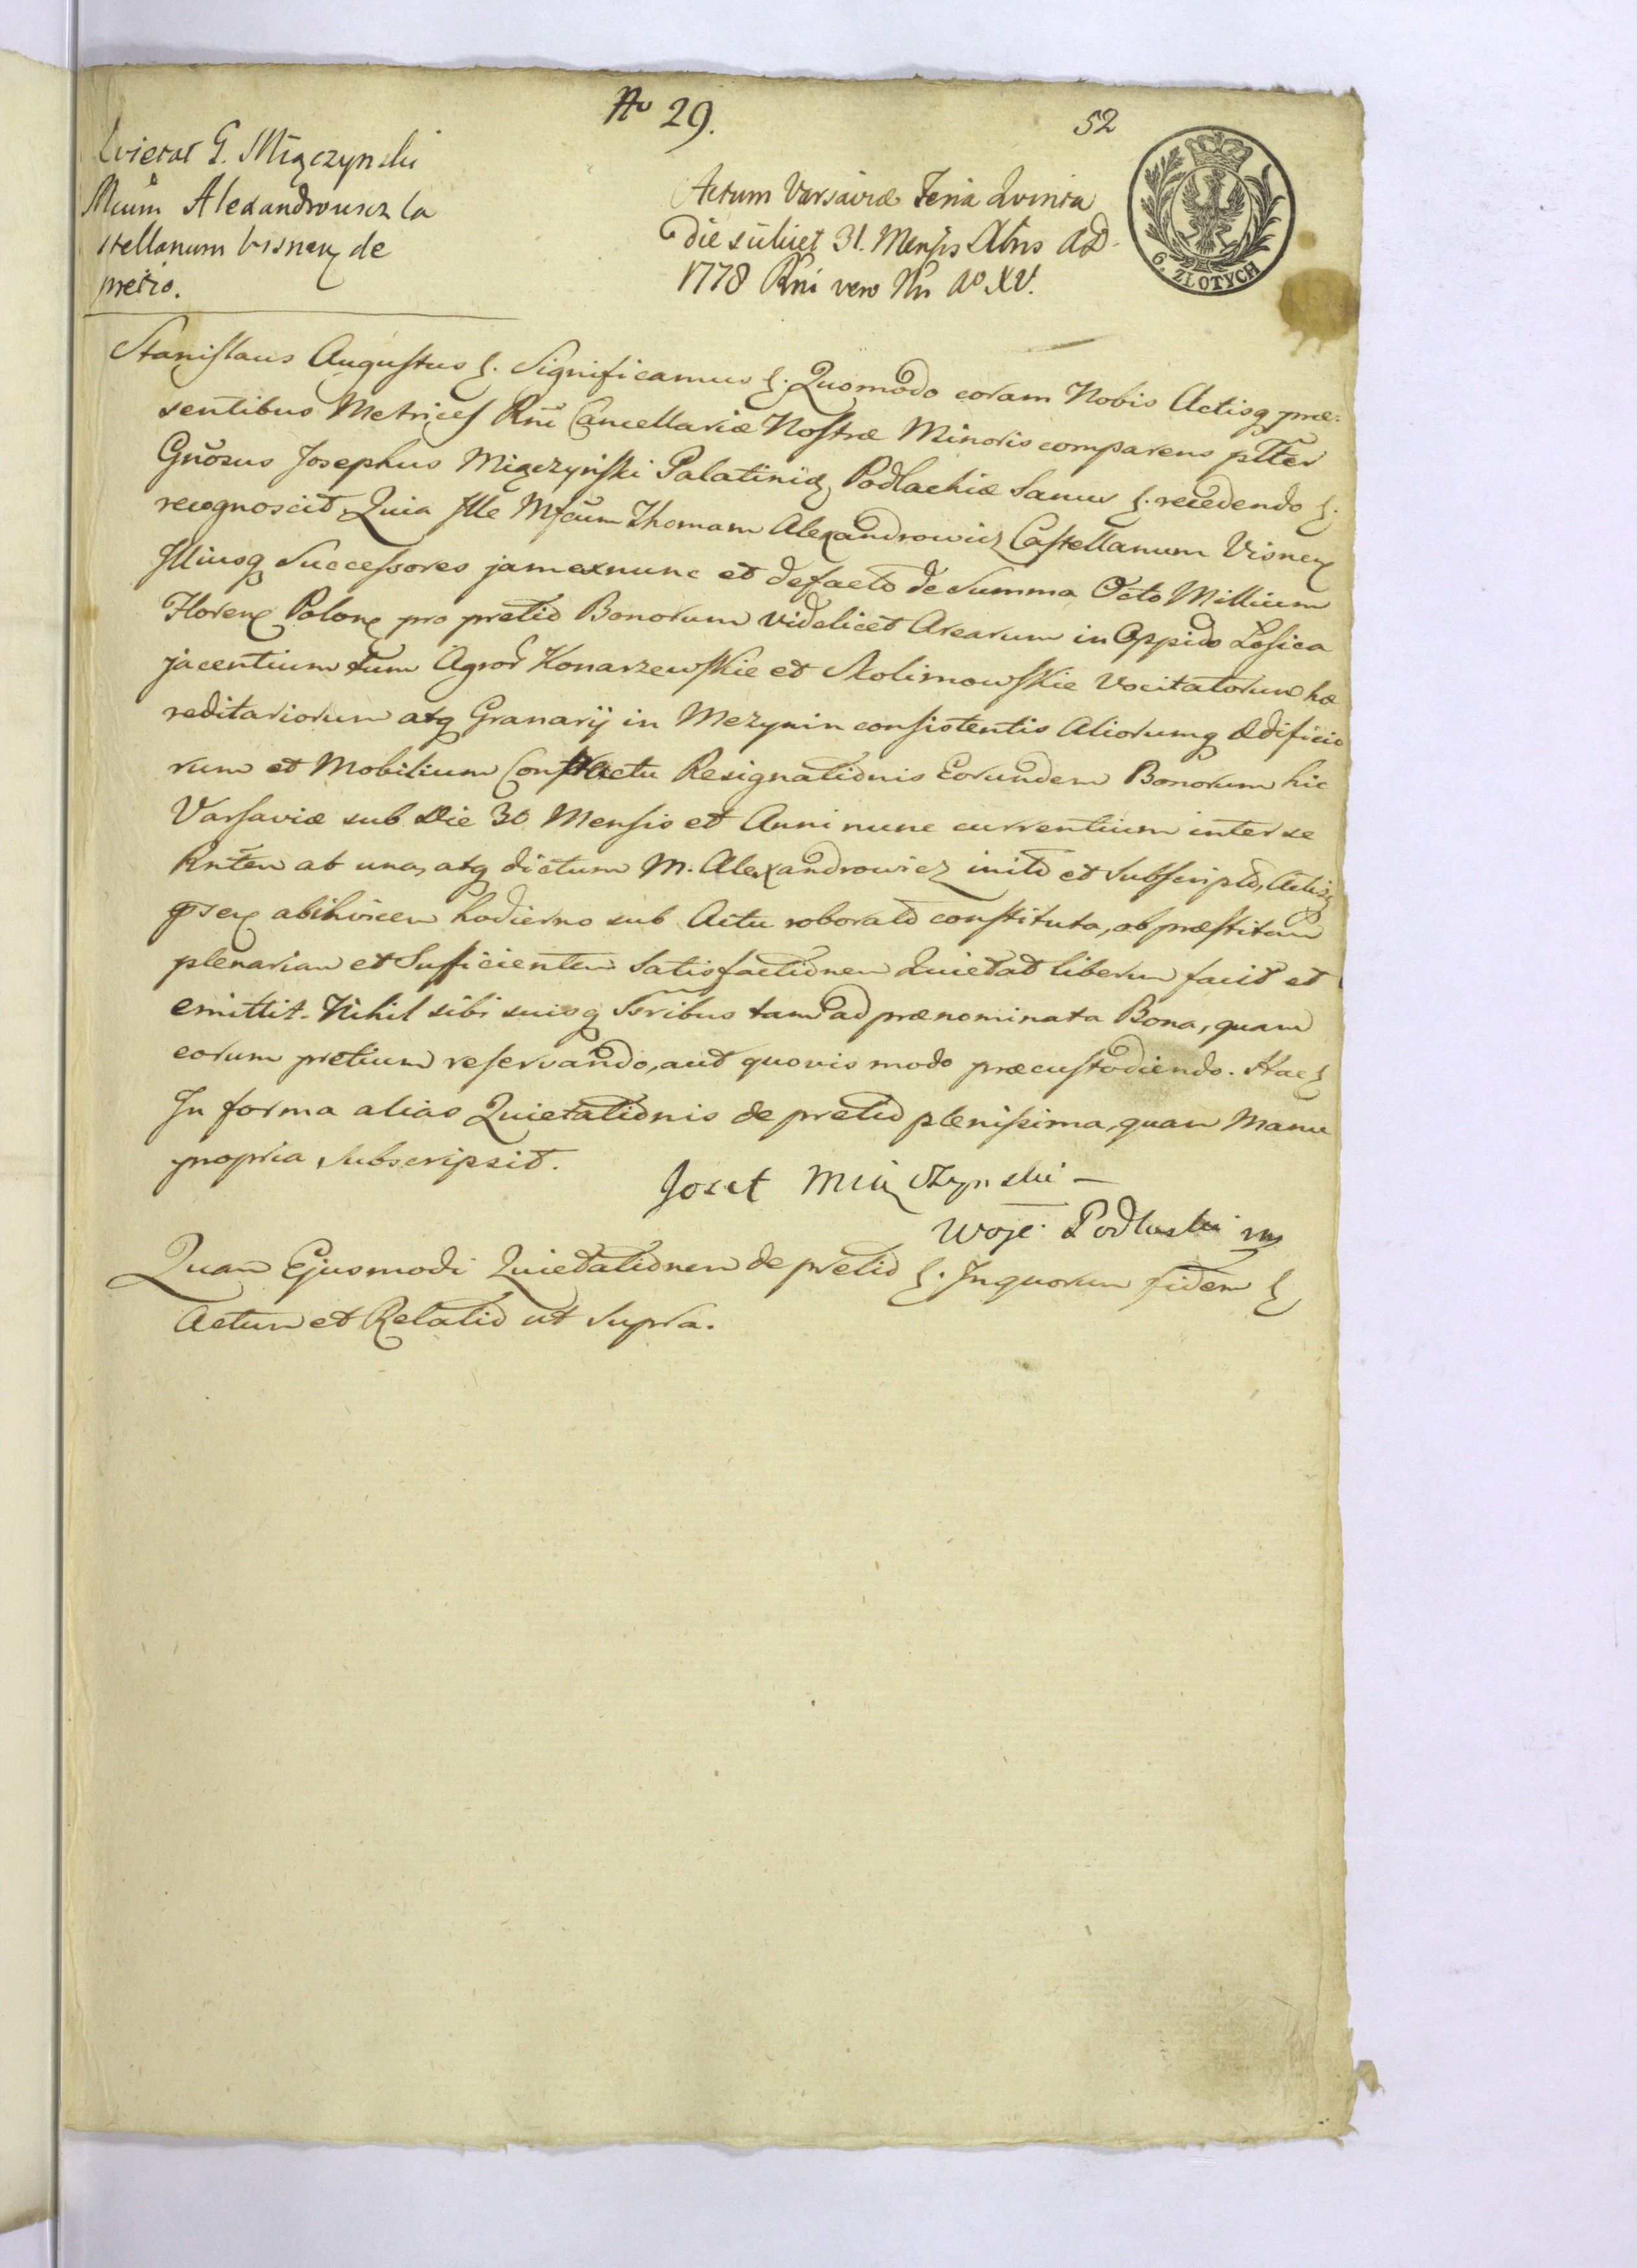 No 29.
52
Quietat G. Miączynski
Mcum Alexandrowicz Ca
stellanum Visnen de
pretio.
Actum Varsaviæ Feria Quinta
die scilicet 31. Mensis Xbris AD
1778 Rni vero Nri Ao XV.
6. ZŁOTYCH
Stanislaus Augustus &. Significamus &. Quomodo coram Nobis Actisq præ-
sentibus Metrices Rni Cancellariæ Nostræ Minoris comparens pltter
Gnosus Josephus Miączyński Palatinid Podlachiæ Sanus &. recedendo &.
recognoscit, Quia Ille Mfcum Thomam Alexandrowicz Castellanum Visnen
Illiusq Successores jam ex nunc et defacto de Summa Octo Millium
Floren Polon pro pretio Bonorum videlicet Arearum in Oppido Losica
jacentium tum Agror Konarzewskie et Stolimowskie Vocitatorum hæ
reditariorum atq Granarij in Mezynin consistentis Aliorumq Ædificio
rum et Mobilium Contractu Resignationis Eorundem Bonorum hic
Varsaviæ sub Die 30 Mensis et Anni nunc currentium inter se
Rnten ab una, atq dictum M. Alexandrowicz inito et Subscripto, Actisq
abinvicem hodierno sub Actu roborato constituta, ob præstitam
plenariam et Sufficientem Satisfactionem Quietat liberum facit et
emittit. Nihil sibi suisq Ssribus tam ad prænominata Bona, quam
eorum pretium reservando, aut quovis modo præcustodiendo. Hac &
In forma alias Quietationis de pretio plenissima, quam Manu
propria subscripsit.
Jozef Miączynski —
Woje. Podlaski mp
Quam Ejusmodi Quietationem de pretio &. In quorum fidem &
Actum et Relatio ut Supra.